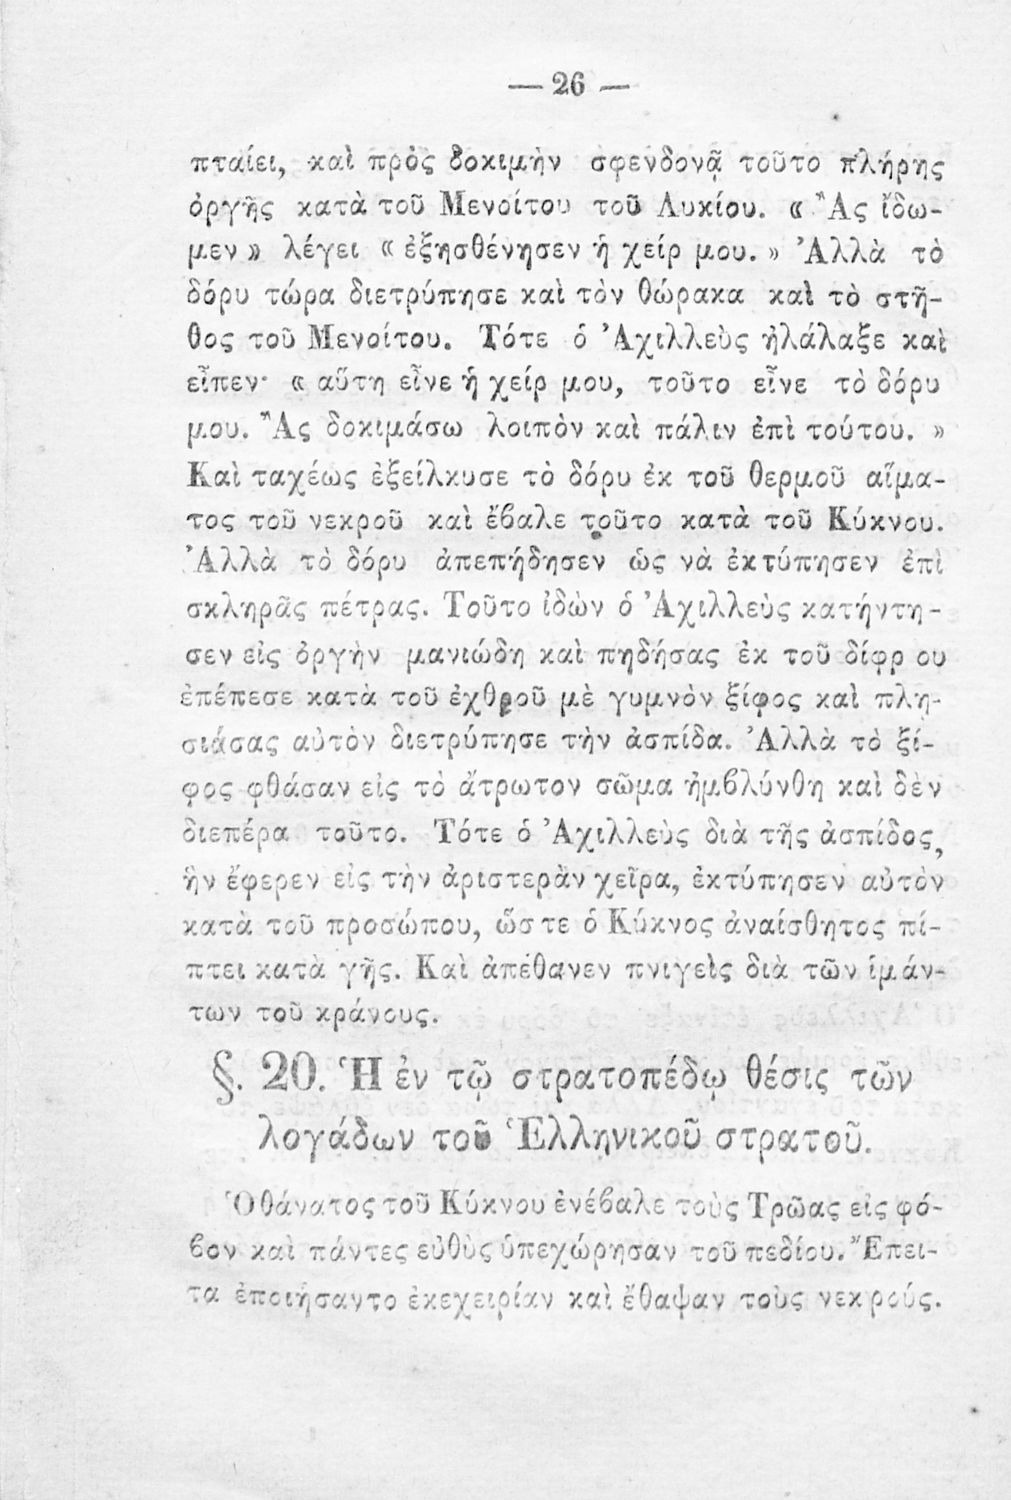 — 26 —
πταίει, καὶ πρὸς δοκιμὴν σφενδονᾷ τοῦτο πλήρης
ὀργῆς κατὰ τοῦ Μενοίτου τοῦ Λυκίου. « Ἂς ἴδω-
μεν » λέγει « ἐξησθένησεν ἡ χείρ μου. » Ἀλλὰ τὸ
δόρυ τώρα διετρύπησε καὶ τὸν θώρακα καὶ τὸ στῆ-
θος τοῦ Μενοίτου. Τότε ὁ Ἀχιλλεὺς ἠλάλαξε καὶ
εἶπεν· « αὕτη εἶνε ἡ χείρ μου, τοῦτο εἶνε τὸ δόρυ
μου. Ἂς δοκιμάσω λοιπὸν καὶ πάλιν ἐπὶ τούτου. »
Καὶ ταχέως ἐξείλκυσε τὸ δόρυ ἐκ τοῦ θερμοῦ αἵμα-
τος τοῦ νεκροῦ καὶ ἔβαλε τοῦτο κατὰ τοῦ Κύκνου.
Ἀλλὰ τὸ δόρυ ἀπεπήδησεν ὡς νὰ ἐκτύπησεν ἐπὶ
σκληρᾶς πέτρας. Τοῦτο ἰδὼν ὁ Ἀχιλλεὺς κατήντη-
σεν εἰς ὀργὴν μανιώδη καὶ πηδήσας ἐκ τοῦ δίφρου
ἐπέπεσε κατὰ τοῦ ἐχθροῦ μὲ γυμνὸν ξίφος καὶ πλη-
σιάσας αὐτὸν διετρύπησε τὴν ἀσπίδα. Ἀλλὰ τὸ ξί-
φος φθάσαν εἰς τὸ ἄτρωτον σῶμα ἠμβλύνθη καὶ δὲν
διεπέρα τοῦτο. Τότε ὁ Ἀχιλλεὺς διὰ τῆς ἀσπίδος,
ἣν ἔφερεν εἰς τὴν ἀριστερὰν χεῖρα, ἐκτύπησεν αὐτὸν
κατὰ τοῦ προσώπου, ὥστε ὁ Κύκνος ἀναίσθητος πί-
πτει κατὰ γῆς. Καὶ ἀπέθανεν πνιγεὶς διὰ τῶν ἱμάν-
των τοῦ κράνους.
§. 20. Ἡ ἐν τῷ στρατοπέδῳ θέσις τῶν
λογάδων τοῦ Ἑλληνικοῦ στρατοῦ.
Ὁ θάνατος τοῦ Κύκνου ἐνέβαλε τοὺς Τρῶας εἰς φό-
βον καὶ πάντες εὐθὺς ὑπεχώρησαν τοῦ πεδίου. Ἔπει-
τα ἐποιήσαντο ἐκεχειρίαν καὶ ἔθαψαν τοὺς νεκρούς.